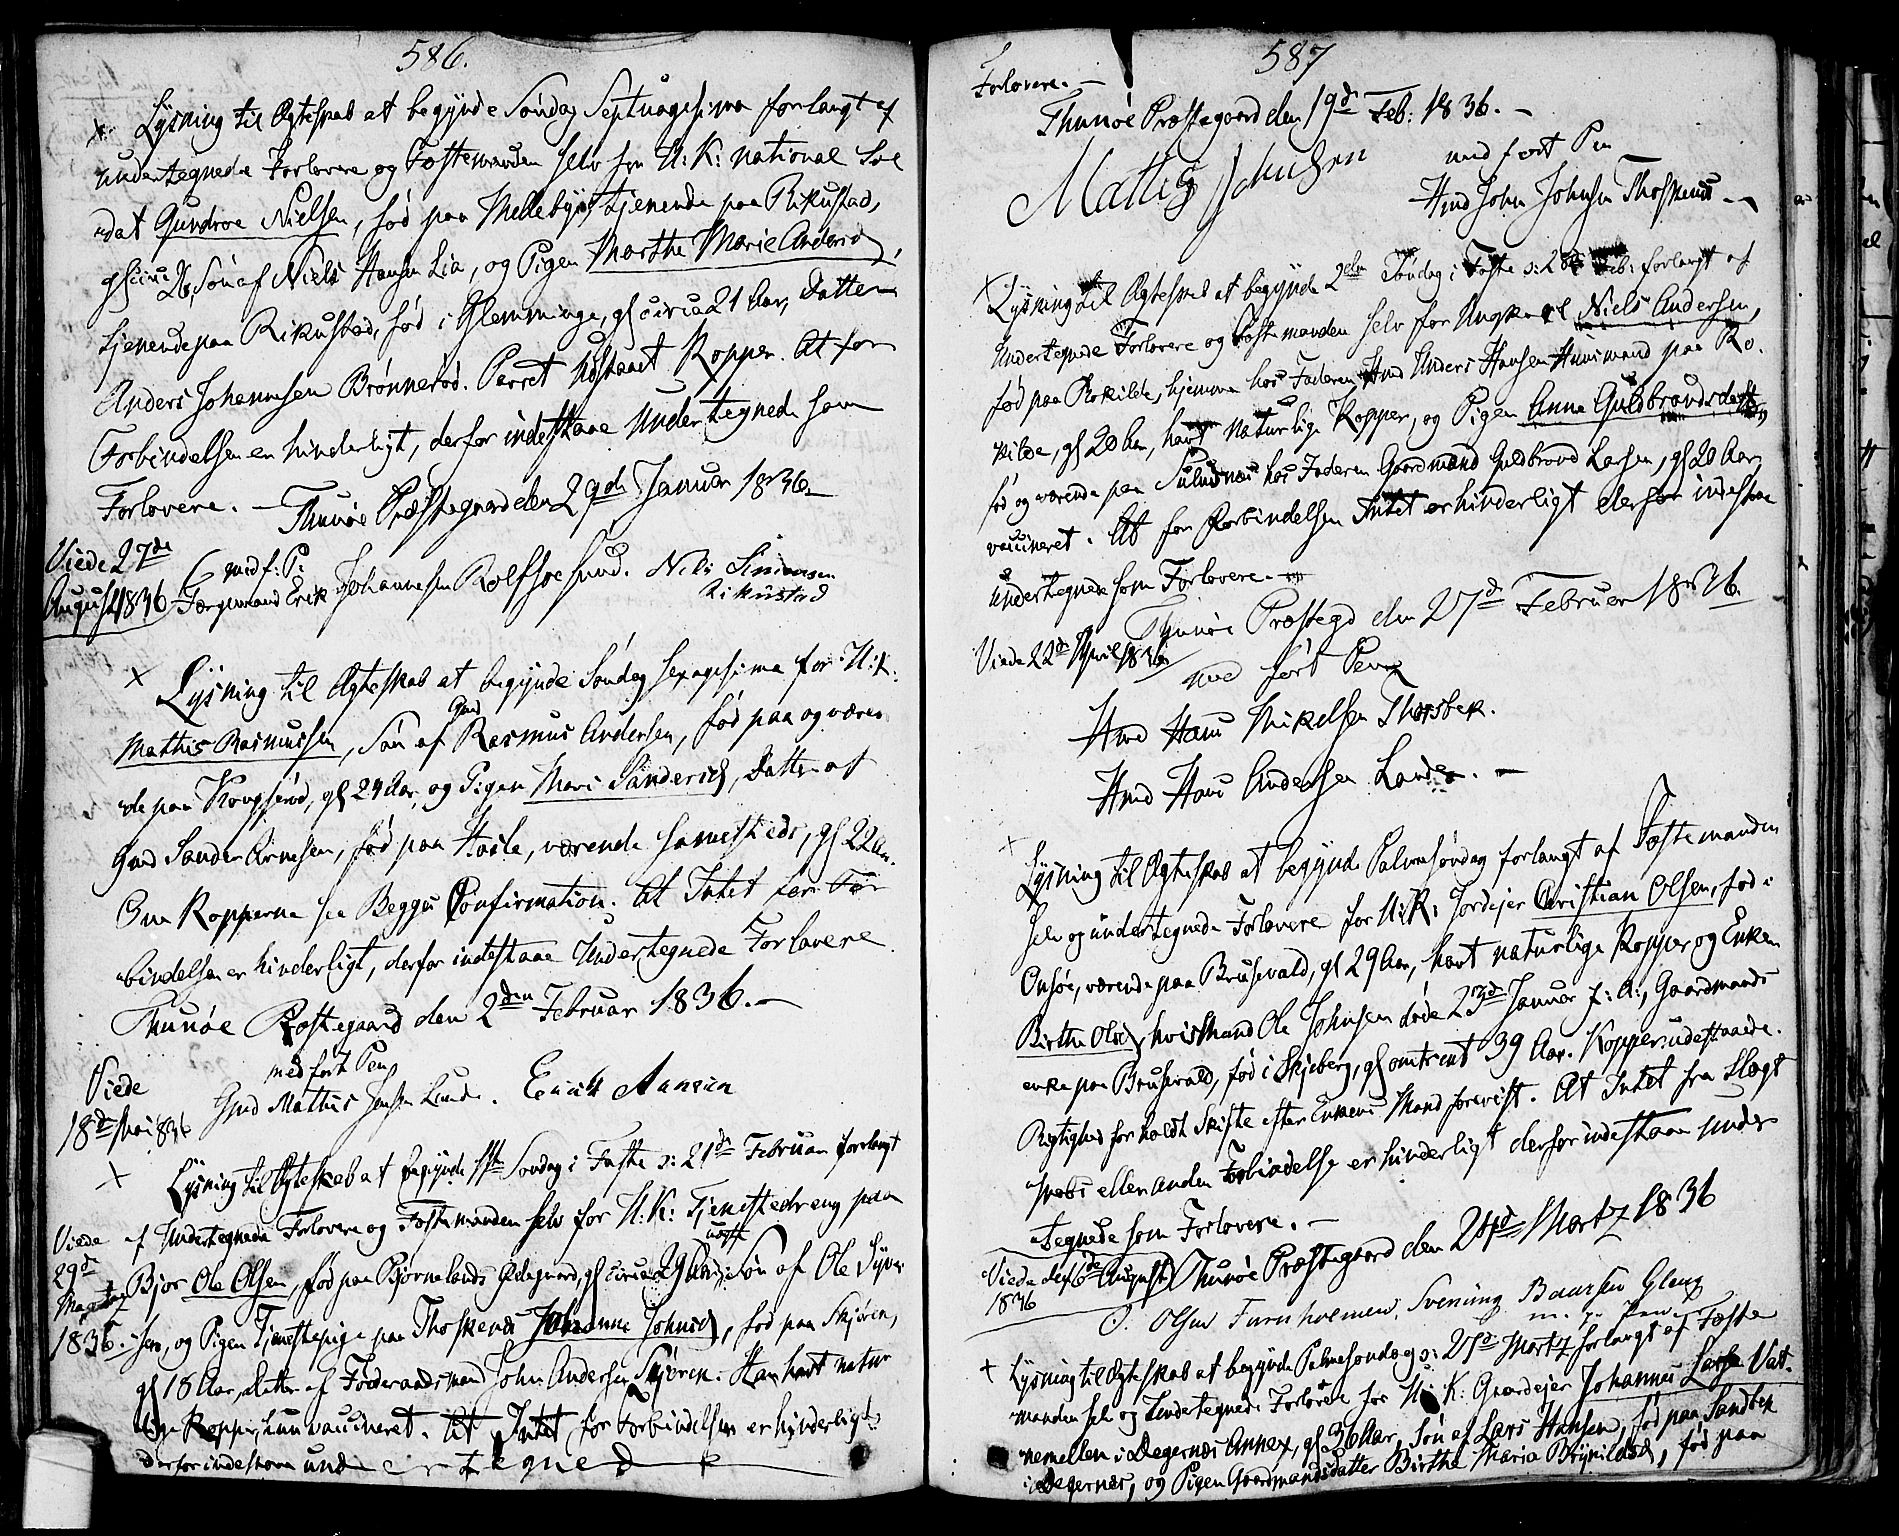 586.
× Lysning til Ægteskab at begynde Søndag Septuagesima forlangt af
undertegnede Forlovere og Fæstemanden selv for U: K: national Sol
dat Gundroe Nielsen, fød paa Mellebye, tjenende paa Rikustad,
gl circa 26, Søn af Niels Hansen Lia, og Pigen Marthe Marie Andersd,
tjenende paa Rikustad, fød i Glemminge, gl circa 21 Aar, Datter
Anders Johannesen Brønnerød. Parret udstaaet Kopper. At for
Forbindelsen er hinderligt, derfor indestaae undertegnede som
Forlovere. — Thunøe Præstegaard den 29de Januar 1836.
Viede 27de
August 1836
med f: P:
Færgemand Erik Johannesen Rolfsøesund. Nils Simensen
Rikustad
× Lysning til Ægteskab at begynde Søndag Sexagesima for U: K:
Mathis Rasmussen, Søn af Gmd Rasmus Andersen, fød paa og væren
de paa Kongsrød, gl 24 Aar, og Pigen Mari Sandersd, Datter af
Gmd Sander Arnesen, fød paa Hasle, værende samestieds, gl 22 Aar.
Om Kopperne see Begges Confirmation. At Intet for For
bindelsen er hinderligt, derfor indestaae Undertegnede Forlovere
Thunøe Præstegaard den 2den Februar 1836. —
Viede
18de Mai 1836
med ført Pen
Gmd Mathis Jensen Lunde. Erich Hansen
× Lysning til Ægteskab at begynde 1ste Søndag i Faste o: 21de Februar forlangt
Viede
29de
1836.
af Undertegnede Forlovere og Fæstemanden selv for U: K: Tjenestedreng paa
Bjor Ole Olsen, fød paa Bjørnelands Ødegaard, gl circa 29 Aar, Søn af Ole Syver
sen, og Pigen Tjenestepige paa Thoskenes Johanne Johnsd, fød paa Skjøren,
gl 18 Aar, Datter af Føderaadsmand John Andersen Skjøren. Han havt natur
lige Kopper, hun vaccineret. At Intet for Forbindelsen er hinderligt,
derfor indestaae undertegned
587
Forlovere. —
Thunøe Præstegaard den 19de Feb: 1836. —
Mathis Jensen
med ført Pen
Hmd John Johnsen Thoskenes —
× Lysning til Ægteskab at begynde 2den Søndag i Faste o: 28de Feb: forlangt af
Undertegnede Forlovere og Fæstemanden selv for Ungkarl Niels Andersen,
fød paa Rokilde, hjemme hos Faderen Hmd Anders Hansen Huusmand paa Ro
kilde, gl 20 Aar, havt naturlige Kopper, og Pigen Anne Guldbrandsdatter,
fød og værende paa hos Faderen Gaardmand Guldbrand Larsen, gl 20 Aar,
vaccineret. At for Forbindelsen Intet er hinderligt derfor indestaae
undertegnede som Forlovere. —
Thunøe Præstegd den 27de Februar 1836.
Viede 22de April 1836
med ført Pen
Hmd Hans Mikelsen Thorsbek.
Hmd Hans Andersen Lande. —
+ Lysning til Ægteskab at begynde Palmesøndag forlangt af Fæstemanden
selv og undertegnede Forlovere for U: K: Jordejer Christian Olsen, fød i
Onsøe, værende paa Brusevald, gl 29 Aar, havt naturlige Kopper og Enken
Birthe Olsd, hvis Mand Ole Johnsen døde 23de Januar f: A:, Gaardmands
enke paa Brusevald, fød i Skjeberg, gl omtrent 39 Aar. Kopper udestaaede.
Rigtighed for holdt Skifte efter Enkens Mand foreviist. At Intet fra Slægt
skabs eller anden Forbindelse er hinderligt derfor indestaae under
tegnede som Forlovere. —
Viede den 6te August
1836
Thunøe Præstegaard den 24de Martz 1836
O. Olsen Furuholmen. Svening Baarsen Gleng
m. f. Pen
+ Lysning til Ægteskab at begynde Palmesøndag o: 27de Martz forlangt af Fæste
manden selv og Undertegnede Forlovere for U: K: Gaardejer Johannes Larsen Vat
nemellen i Degernes Annex, gl 30 Aar, Søn af Lars Hansen, fød paa Sandbek
i Degernes, og Pigen Gaardmandsdatter Birthe Maria Brynildsd, fød paa